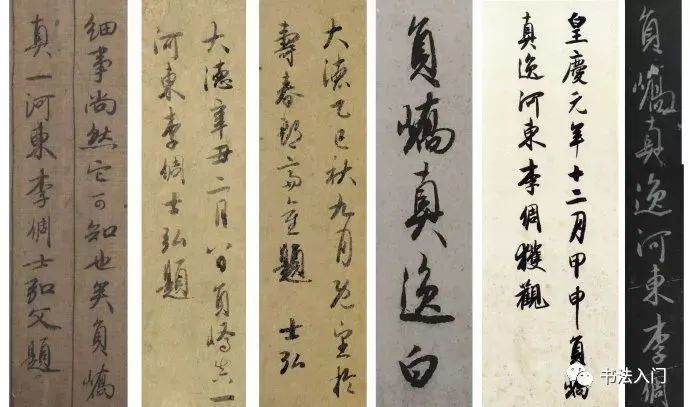 細事尚然它可知也矣員嶠
真一河東李倜士弘父題
大德辛丑二月八日員嶠真一
河東李倜士弘題
大德乙巳秋九月既望於
壽春郡齋重題 士弘
員嶠真逸白
皇慶元年十二月甲申員嶠
真逸河東李倜獲觀
員嶠真逸河東李倜
书法入门